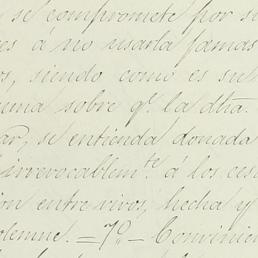 se compromete por s
es á no usarla jamas
os, siendo como es su
uma sobre qe. la dha.
ar, se entienda donada
irrevocablemte. á los ces
ion entre vivos, hecha y
olemne. = 7o. - Convinie